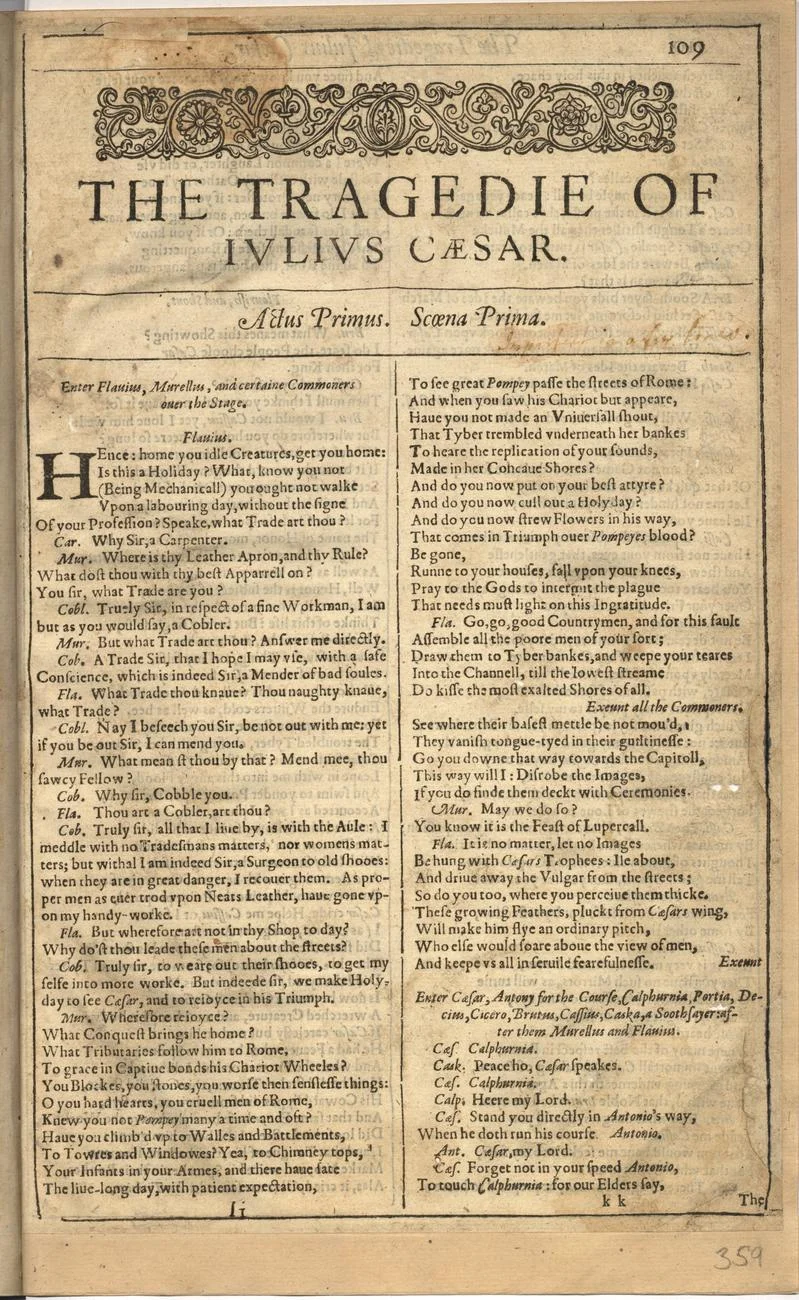 109
THE TRAGEDIE OF
IVLIVS CÆSAR.
Actus Primus. Scœna Prima.
Enter Flauius, Murellus, and certaine Commoners
ouer the Stage.
Flauius.
HEnce: home you idle Creatures, get you home:
Is this a Holiday? What, know you not
(Being Mechanicall) you ought not walke
Vpon a labouring day, without the signe
Of your Profession? Speake, what Trade art thou?
Car. Why Sir, a Carpenter.
Mur. Where is thy Leather Apron, and thy Rule?
What dost thou with thy best Apparrell on?
You sir, what Trade are you?
Cobl. Truely Sir, in respect of a fine Workman, I am
but as you would say, a Cobler.
Mur. But what Trade art thou? Answer me directly.
Cob. A Trade Sir, that I hope I may vse, with a safe
Conscience, which is indeed Sir, a Mender of bad soules.
Fla. What Trade thou knaue? Thou naughty knaue,
what Trade?
Cobl. Nay I beseech you Sir, be not out with me: yet
if you be out Sir, I can mend you.
Mur. What mean st thou by that? Mend mee, thou
sawcy Fellow?
Cob. Why sir, Cobble you.
Fla. Thou art a Cobler, art thou?
Cob. Truly sir, all that I liue by, is with the Aule: I
meddle with no Tradesmans matters, nor womens mat-
ters; but withal I am indeed Sir, a Surgeon to old shooes:
when they are in great danger, I recouer them. As pro-
per men as euer trod vpon Neats Leather, haue gone vp-
on my handy-worke.
Fla. But wherefore art not in thy Shop to day?
Why do'st thou leade these men about the streets?
Cob. Truly sir, to weare out their shooes, to get my
selfe into more worke. But indeede sir, we make Holy-
day to see Cæsar, and to reioyce in his Triumph.
Mur. Wherefore reioyce?
What Conquest brings he home?
What Tributaries follow him to Rome,
To grace in Captiue bonds his Chariot Wheeles?
You Blockes, you stones, you worse then senslesse things:
O you hard hearts, you cruell men of Rome,
Knew you not Pompey many a time and oft?
Haue you climb'd vp to Walles and Battlements,
To Towres and Windowes? Yea, to Chimney tops,
Your Infants in your Armes, and there haue sate
The liue-long day, with patient expectation,
To see great Pompey passe the streets of Rome:
And when you saw his Chariot but appeare,
Haue you not made an Vniuersall shout,
That Tyber trembled vnderneath her bankes
To heare the replication of your sounds,
Made in her Concaue Shores?
And do you now put on your best attyre?
And do you now cull out a Holyday?
And do you now strew Flowers in his way,
That comes in Triumph ouer Pompeyes blood?
Be gone,
Runne to your houses, fall vpon your knees,
Pray to the Gods to intermit the plague
That needs must light on this Ingratitude.
Fla. Go, go, good Countrymen, and for this fault
Assemble all the poore men of your sort;
Draw them to Tyber bankes, and weepe your teares
Into the Channell, till the lowest streame
Do kisse the most exalted Shores of all.
Exeunt all the Commoners.
See where their basest mettle be not mou'd,
They vanish tongue-tyed in their guiltinesse:
Go you downe that way towards the Capitoll,
This way will I: Disrobe the Images,
If you do finde them deckt with Ceremonies.
Mur. May we do so?
You know it is the Feast of Lupercall.
Fla. It is no matter, let no Images
Be hung with Cæsars Trophees: Ile about,
And driue away the Vulgar from the streets;
So do you too, where you perceiue them thicke.
These growing Feathers, pluckt from Cæsars wing,
Will make him flye an ordinary pitch,
Who else would soare aboue the view of men,
And keepe vs all in seruile fearefulnesse. Exeunt
Enter Cæsar, Antony for the Course, Calphurnia, Portia, De-
cius, Cicero, Brutus, Cassius, Caska, a Soothsayer: af-
ter them Murellus and Flauius.
Cæs. Calphurnia.
Cask. Peace ho, Cæsar speakes.
Cæs. Calphurnia.
Calp. Heere my Lord.
Cæs. Stand you directly in Antonio's way,
When he doth run his course. Antonio.
Ant. Cæsar, my Lord.
Cæs. Forget not in your speed Antonio,
To touch Calphurnia: for our Elders say,
k k The
359